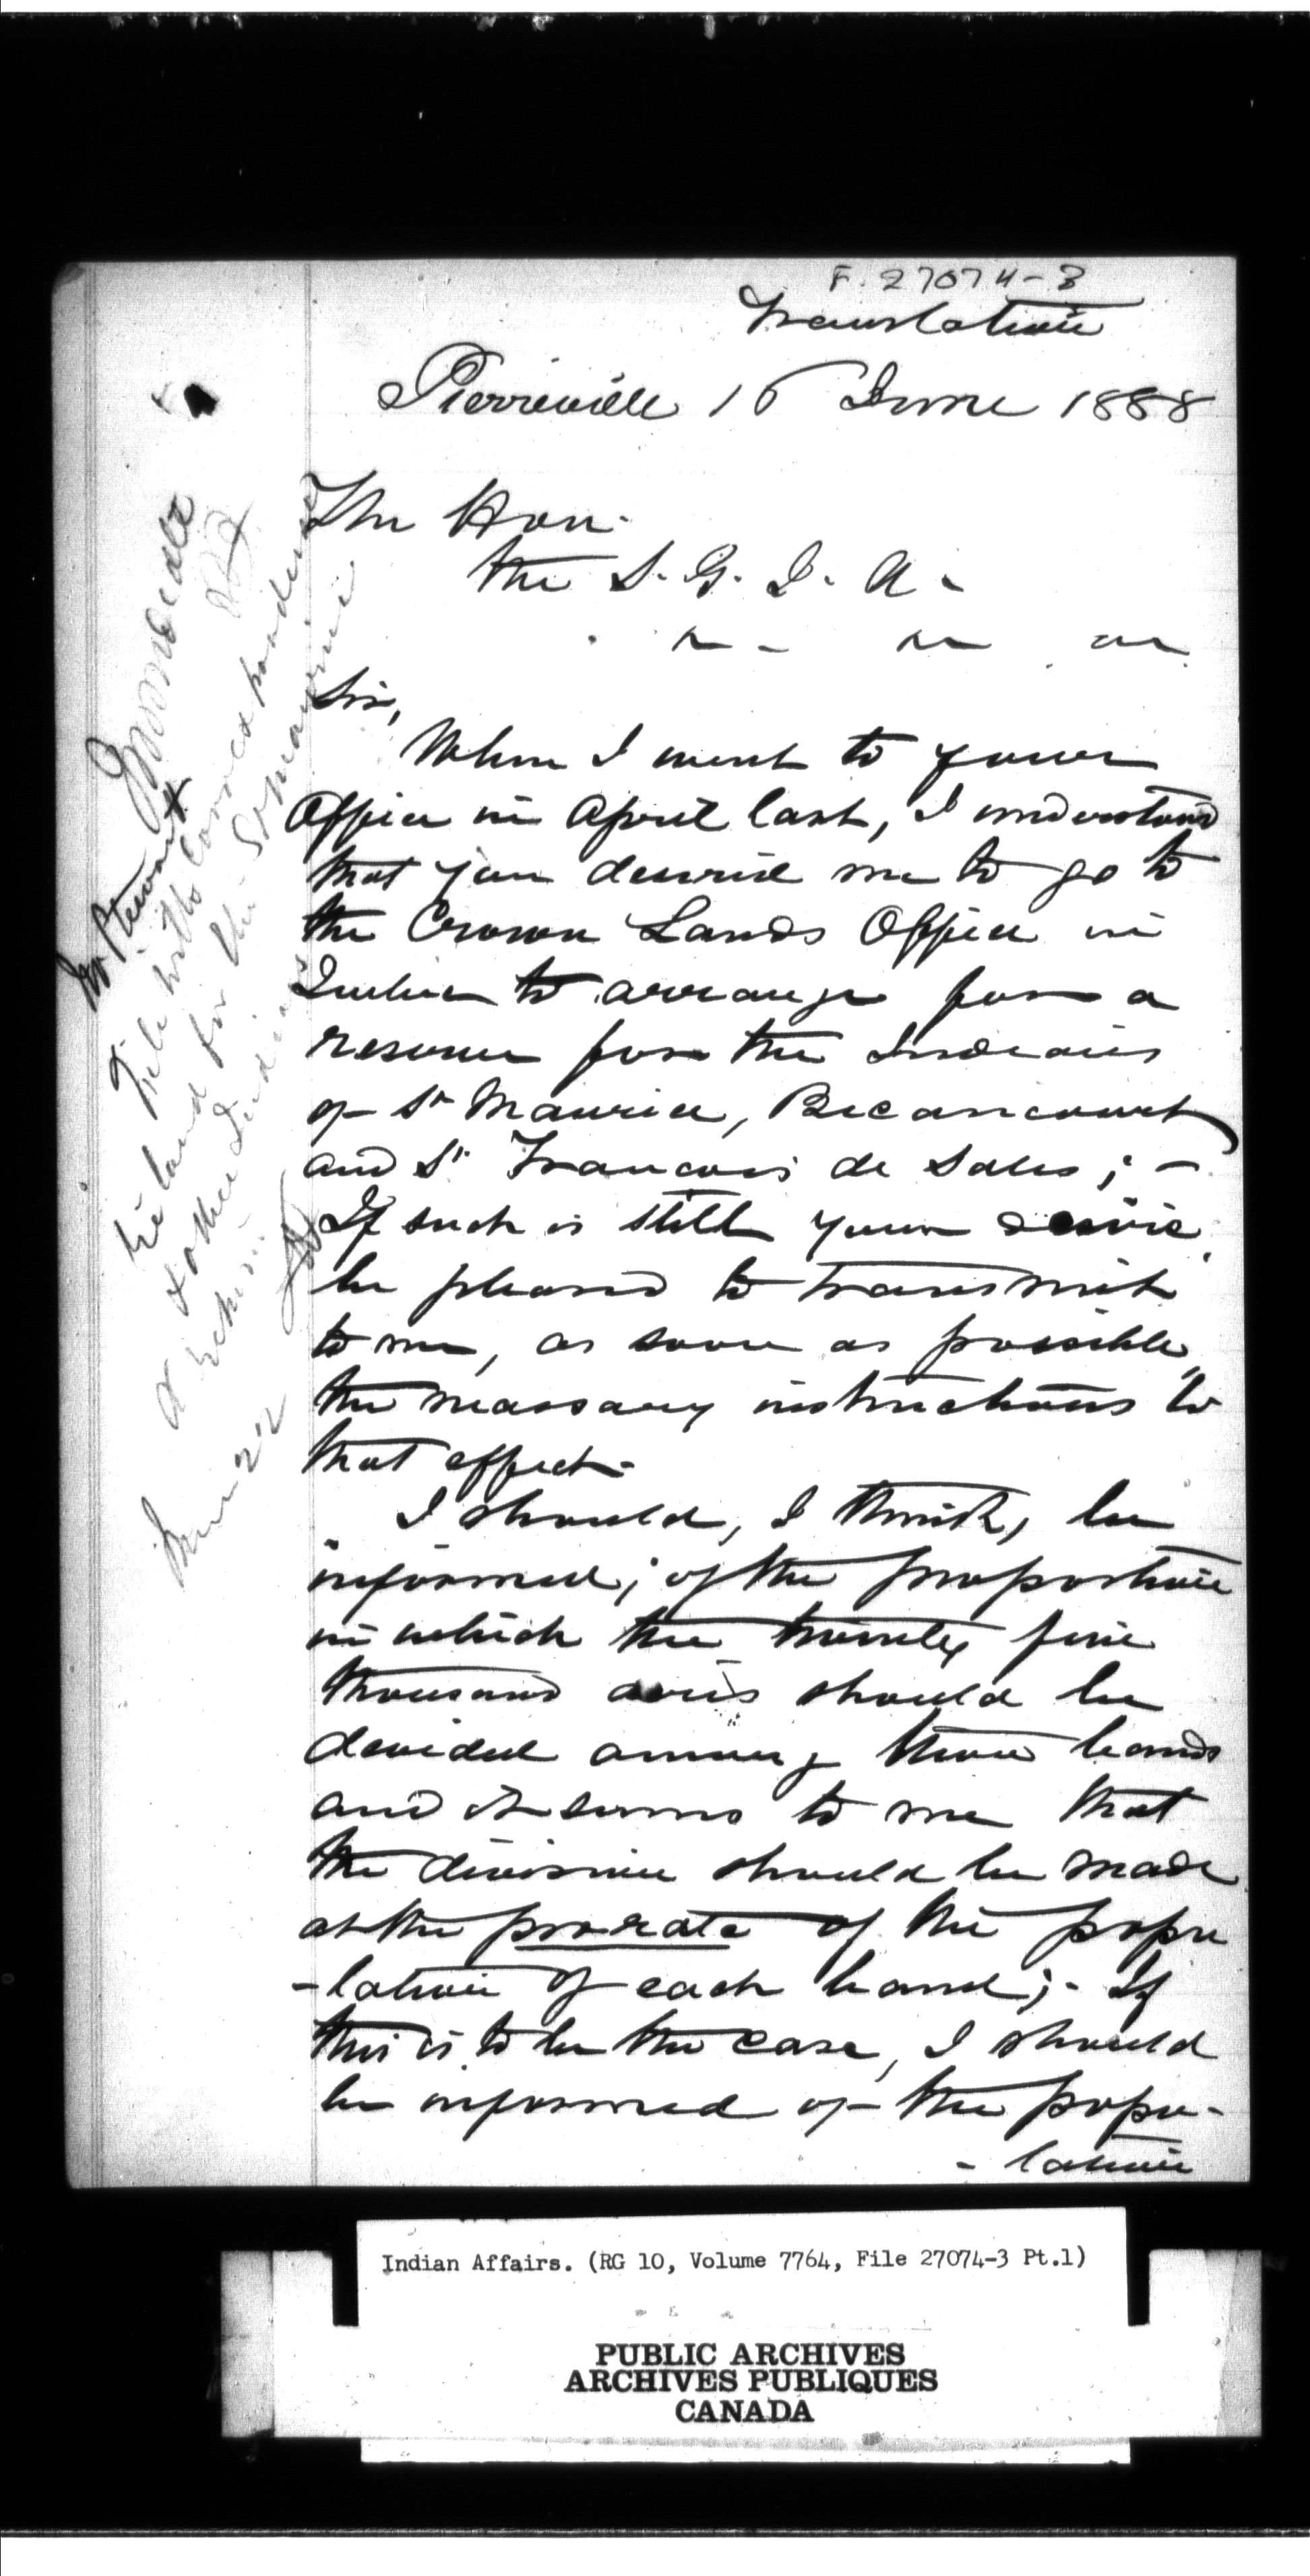 F. 27074-3
Translation
Pierreville 16 June 1888
The Hon.
the S. G. I. A.
Sir,
When I went to your
Office in April last, I understood
that you desired me to go to
the Crown Lands Office in
Quebec to arrange for a
reserve for the Indians
of St Maurice, Becancourt
and St Francois de Sales; -
If such is still your desire
be pleased to transmit
to me, as soon as possible,
the necessary instructions to
that effect.
I should, I think, be
informed; of the proportion
in which the twenty five
thousand acres should be
divided among those bands
and it seems to me that
the division should be made
at the prorata of the popu
-lation of each band; - If
this is to be the case, I should
be informed of the popu-
- lation
Mr Stewart
File with correspondence
re land for the St Maurice
& other Indians
June 22
Indian Affairs. (RG 10, Volume 7764, File 27074-3 Pt.1)
PUBLIC ARCHIVES
ARCHIVES PUBLIQUES
CANADA